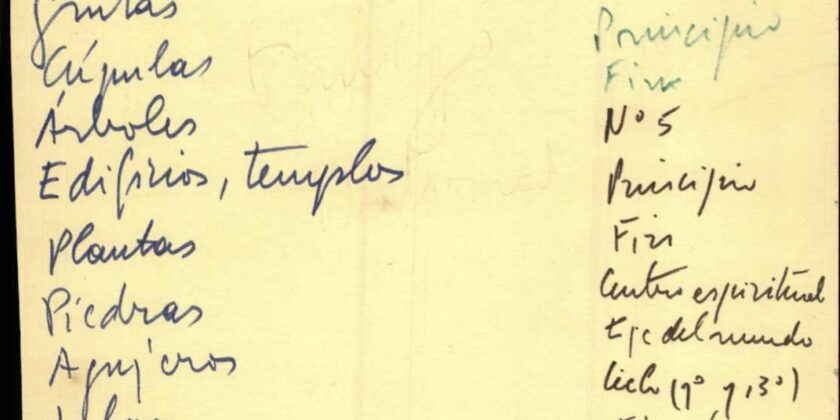 grutas
Cúpulas
Árboles
Edificios, templos
Plantas
Piedras
Agujeros
Principio
Fin
Nº 5
Principio
Fin
Centro espiritual
Eje del mundo